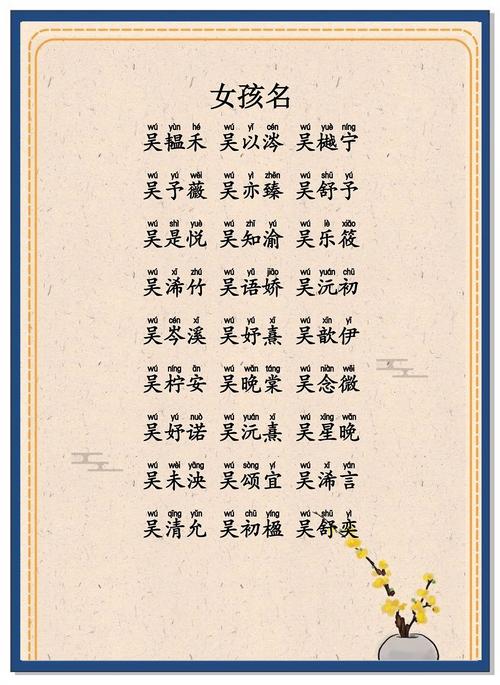 女孩名
wú yùn hé wú yǐ cén wú yuè níng
吴韫禾 吴以涔 吴樾宁
wú yú wēi wú yì zhēn wú shū yú
吴予薇 吴亦臻 吴舒予
wú shì yuè wú zhī yú wú lè xiǎo
吴是悦 吴知渝 吴乐筱
wú xī zhú wú yǔ jiāo wú yuán chū
吴浠竹 吴语娇 吴沅初
wú cén xī wú yú xī wú xīn yī
吴岑溪 吴妤熹 吴歆伊
wú níng ān wú wǎn táng wú niàn wēi
吴柠安 吴晚棠 吴念微
wú yú nuò wú yuán xī wú xīng wǎn
吴妤诺 吴沅熹 吴星晚
wú wèi yāng wú sòng yí wú xī yán
吴未泱 吴颂宜 吴浠言
wú qīng yǔn wú chū yíng wú shū yì
吴清允 吴初楹 吴舒奕